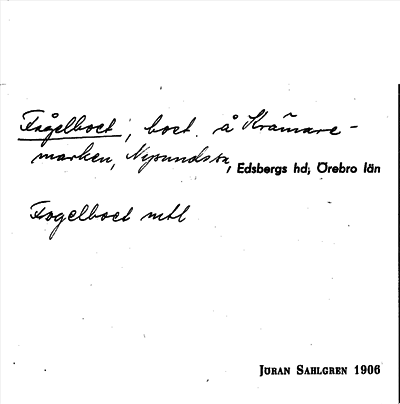 Fågelboet, boet. å Kramare-
marken, Nysundssn, Edsbergs hd, Örebro län
Fogelboet mtl
JÖRAN SAHLGREN 1906